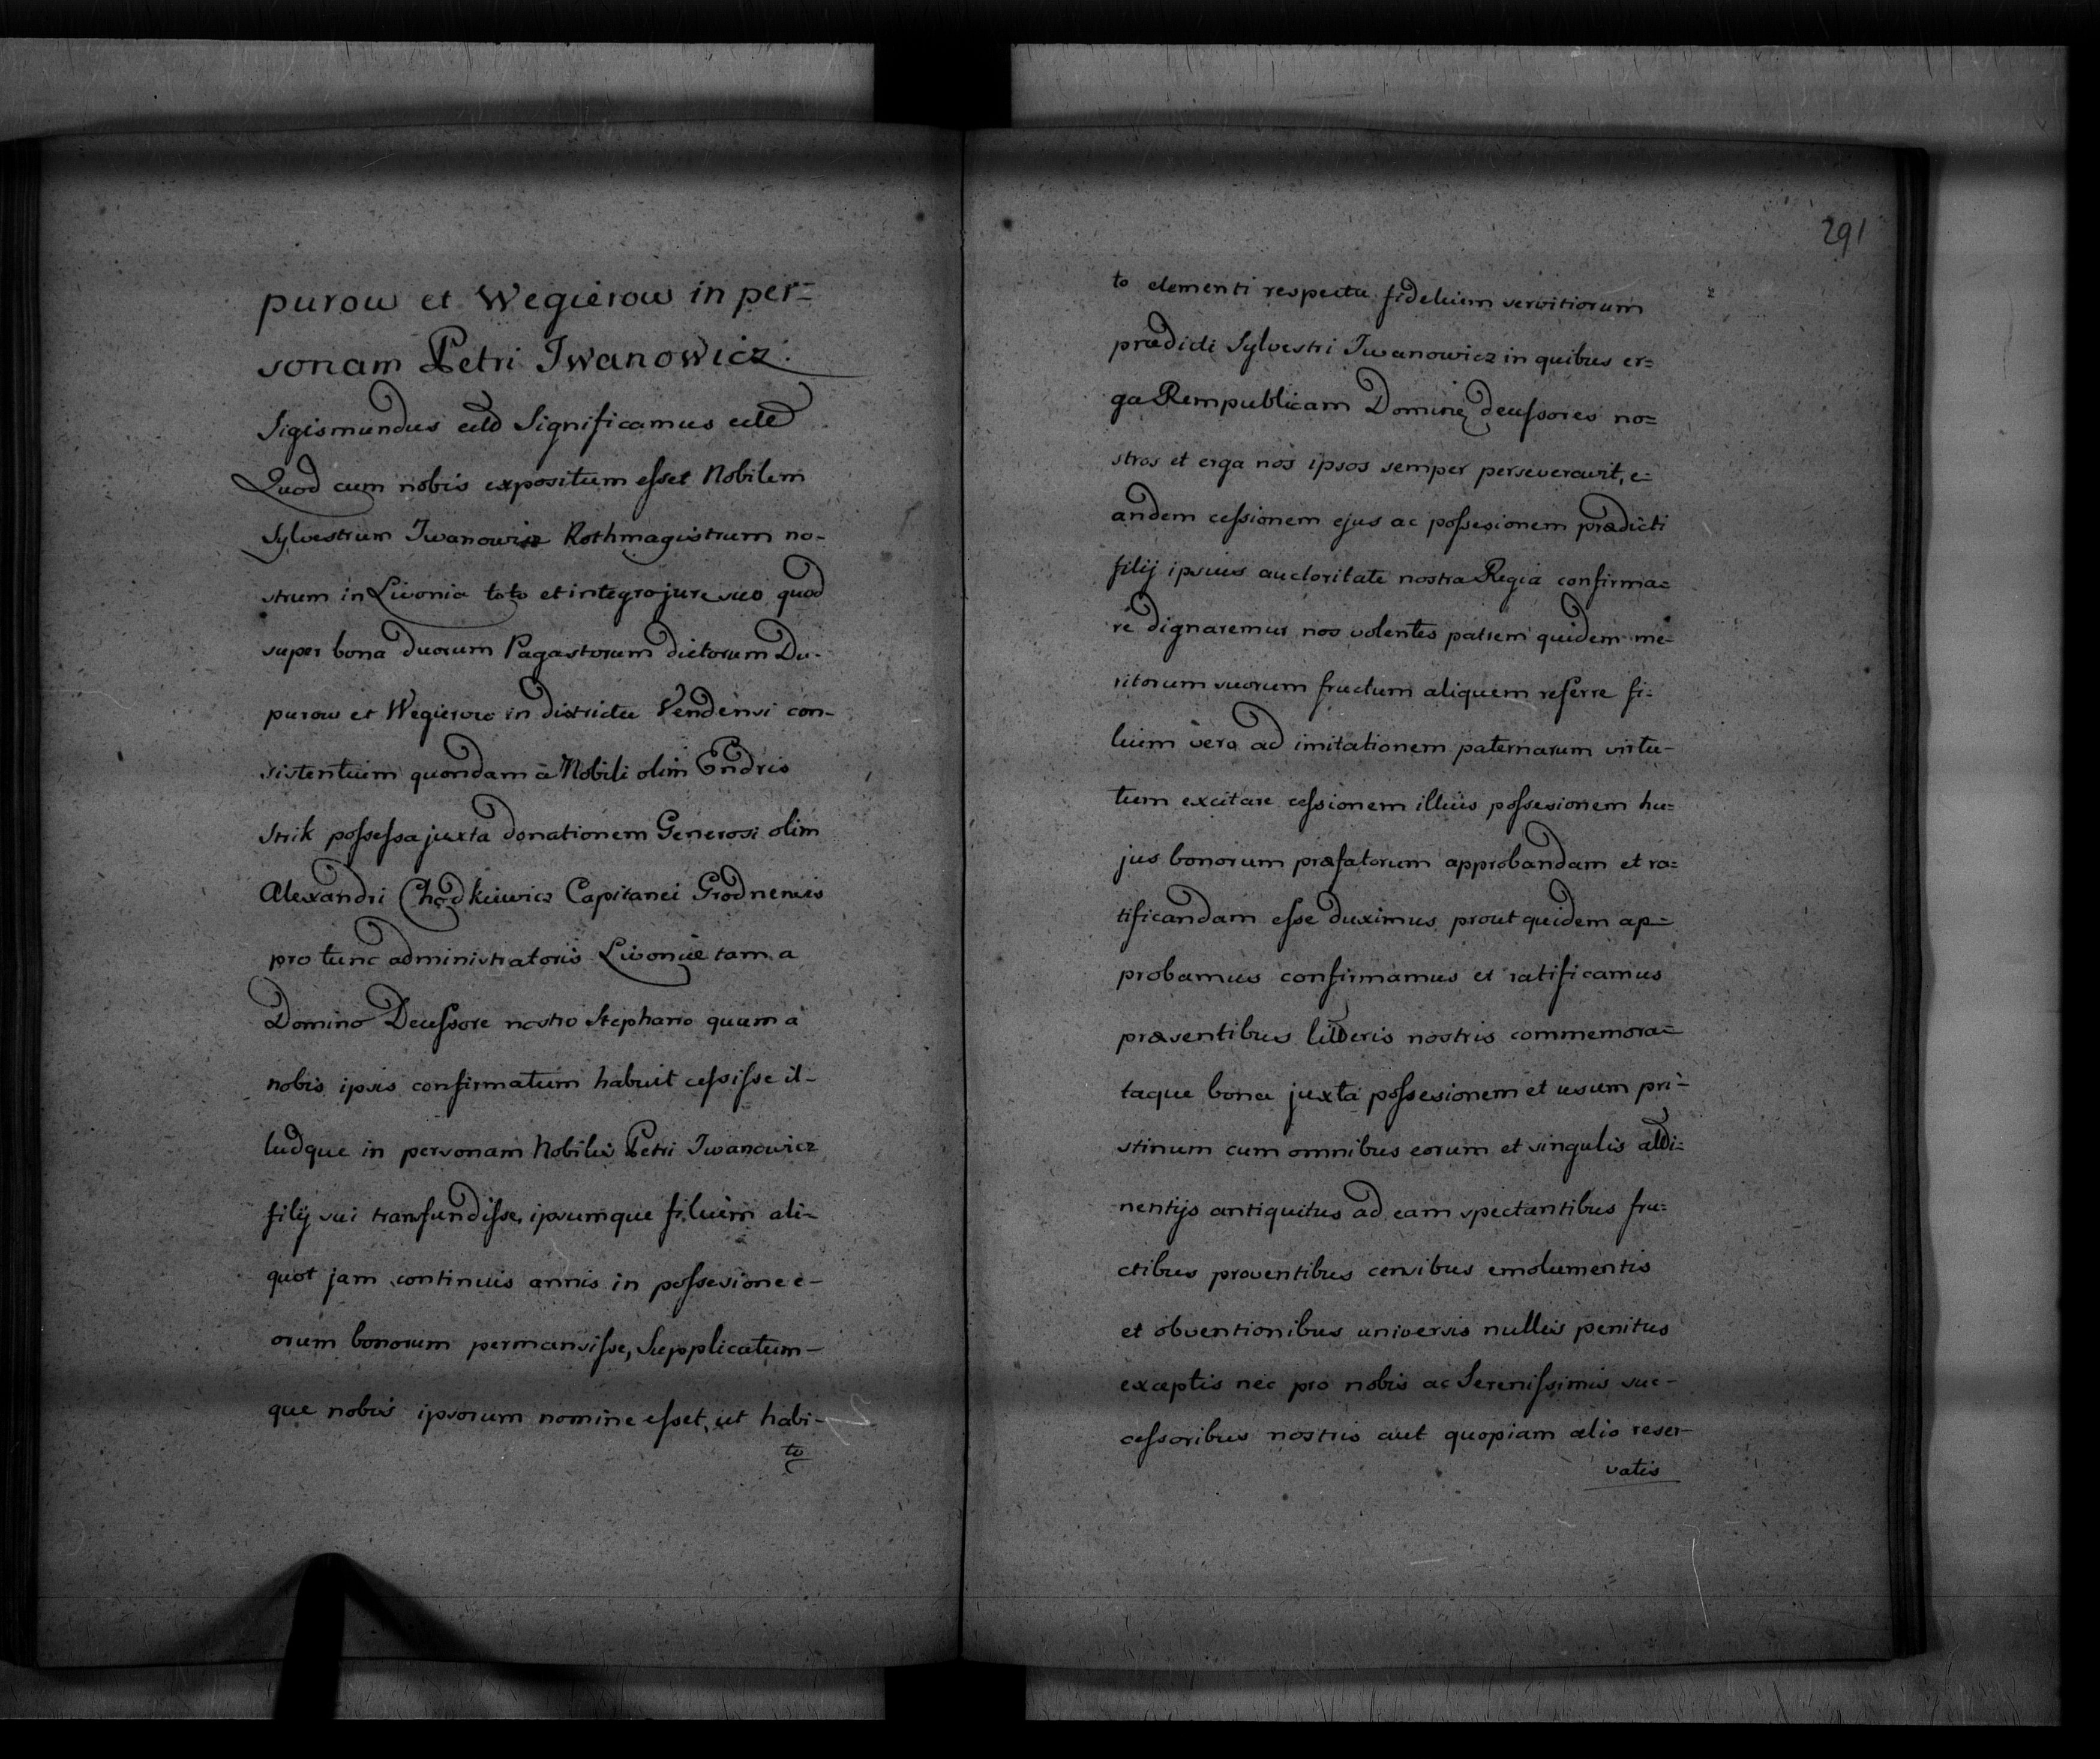 purow et Wegierow in per=
sonam Petri Iwanowicz.
Sigismundus etct Significamus etct
Quod cum nobis expositum esset Nobilem
Sylvestrum Iwanowicz Rothmagistrum no-
strum in Livonia toto et integro jure suo quod
super bona duorum Pagastorum dictorum Du-
purow et Wegierow in districtu Vendensi con-
sistentium quondam a Nobili olim Endris
Strik possessa juxta donationem Generosi olim
Alexandri Chodkiewicz Capitanei Grodnensis
pro tunc administratoris Livoniæ tam a
Domino Decessore nostro Stephano quam a
nobis ipsis confirmatum habuit cessisse il-
ludque in personam Nobilis Petri Iwanowicz
filij sui transfundisse, ipsumque filium ali-
quot jam continuis annis in possesione e-
orum bonorum permansisse, Supplicatum-
que nobis ipsorum nomine esset, ut habi-
to
291
to clementi respectu fidelium servitiorum
prædicti Sylvestri Iwanowicz in quibus er=
ga Rempublicam Domine decessores no=
stros et erga nos ipsos semper perseveravit, e-
andem cessionem ejus ac possesionem prædicti
filij ipsius auctoritate nostra Regia confirma=
re dignaremur nos volentes patrem quidem me-
ritorum suorum fructum aliquem referre fi-
lium vero ad imitationem paternarum virtu-
tum excitare cessionem illius possesionem hu=
jus bonorum præfatorum approbandam et ra=
tificandam esse duximus prout quidem ap=
probamus confirmamus et ratificamus
præsentibus litteris nostris commemora=
taque bona juxta possesionem et usum pri-
stinum cum omnibus eorum et singulis atti-
nentijs antiquitus ad eam spectantibus fru-
ctibus proventibus censibus emolumentis
et obventionibus universis nullis penitus
exceptis nec pro nobis ac Serenissimis suc-
cessoribus nostris aut quopiam alio reser-
vatis